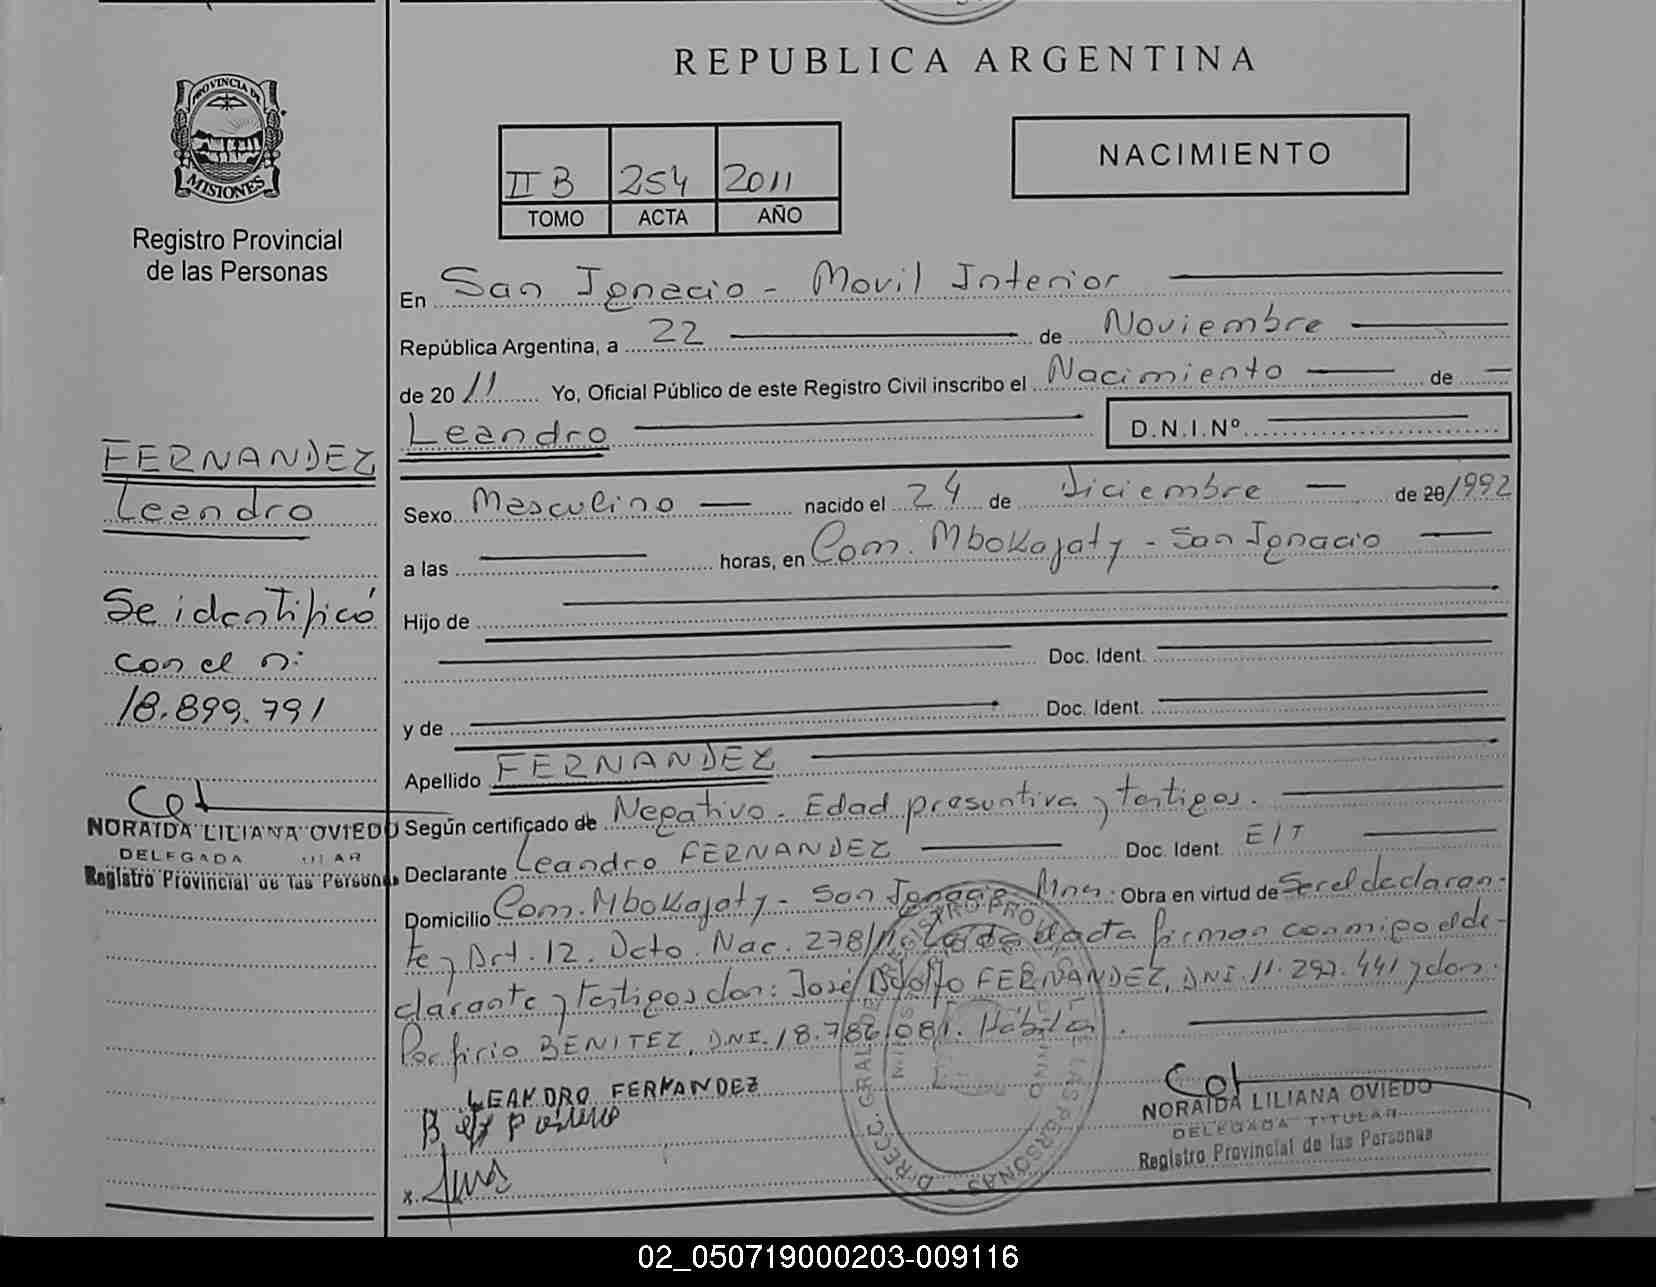 REPUBLICA ARGENTINA
PROVINCIA DE
MISIONES
Registro Provincial
de las Personas
II B 254 2011
TOMO ACTA AÑO
NACIMIENTO
En San Ignacio - Movil Interior
República Argentina, a 22 de Noviembre
de 20 11 Yo, Oficial Público de este Registro Civil inscribo el Nacimiento de
Leandro D.N.I.Nº
FERNANDEZ
Leandro
Se identificó
con el n:
18.899.791
NORAIDA LILIANA OVIEDO
DELEGADA
Registro Provincial de las Personas
Sexo Masculino nacido el 24 de Diciembre de 20/1992
a las horas, en Com. Mbokajaty - San Ignacio
Hijo de
Doc. Ident.
y de Doc. Ident.
Apellido FERNANDEZ
Según certificado de Negativo - Edad presuntiva y testigos.
Declarante Leandro FERNANDEZ Doc. Ident. E/T
Domicilio Com. Mbokajaty - San Ignacio Mnes. Obra en virtud de Ser el declaran-
te y Art. 12. Dcto. Nac. 278/11. Leída el acta firman conmigo el de-
clarante y testigos don: José Adolfo FERNANDEZ, DNI. 11.297.441 y don.
Porfirio BENITEZ, DNI. 18.786.081. Hábiles.
LEANDRO FERNANDEZ
NORAIDA LILIANA OVIEDO
DELEGADA TITULAR
Registro Provincial de las Personas
02_050719000203-009116